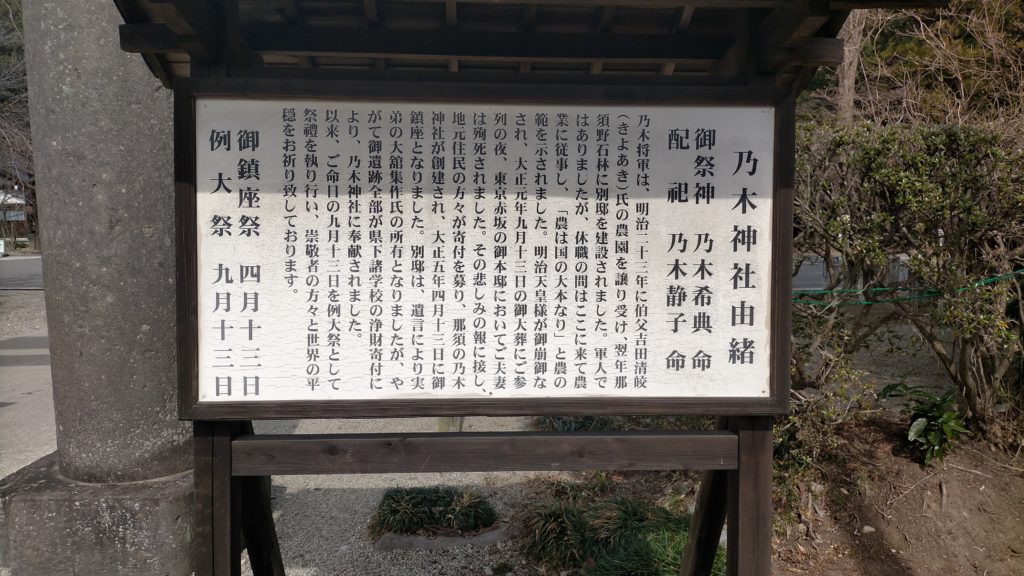 乃木神社由緒
御祭神　乃木希典　命
配　祀　乃木静子　命
乃木将軍は、明治二十三年に伯父吉田清皎
(きよあき)氏の農園を譲り受け、翌年那
須野石林に別邸を建設されました。軍人で
はありましたが、休職の間はここに来て農
業に従事し、「農は国の大本なり」と農の
範を示されました。明治天皇様が御崩御な
され、大正元年九月十三日の御大葬にご参
列の夜、東京赤坂の御本邸においてご夫妻
は殉死されました。その悲しみの報に接し、
地元住民の方々が寄付を募り、那須の乃木
神社が創建され、大正五年四月十三日に御
鎮座となりました。別邸は、遺言により実
弟の大舘集作氏の所有となりましたが、や
がて御遺跡全部が県下諸学校の浄財寄付に
より、乃木神社に奉献されました。
以来、ご命日の九月十三日を例大祭として
祭禮を執り行い、崇敬者の方々と世界の平
穏をお祈り致しております。
御鎮座祭　四月十三日
例大祭　九月十三日